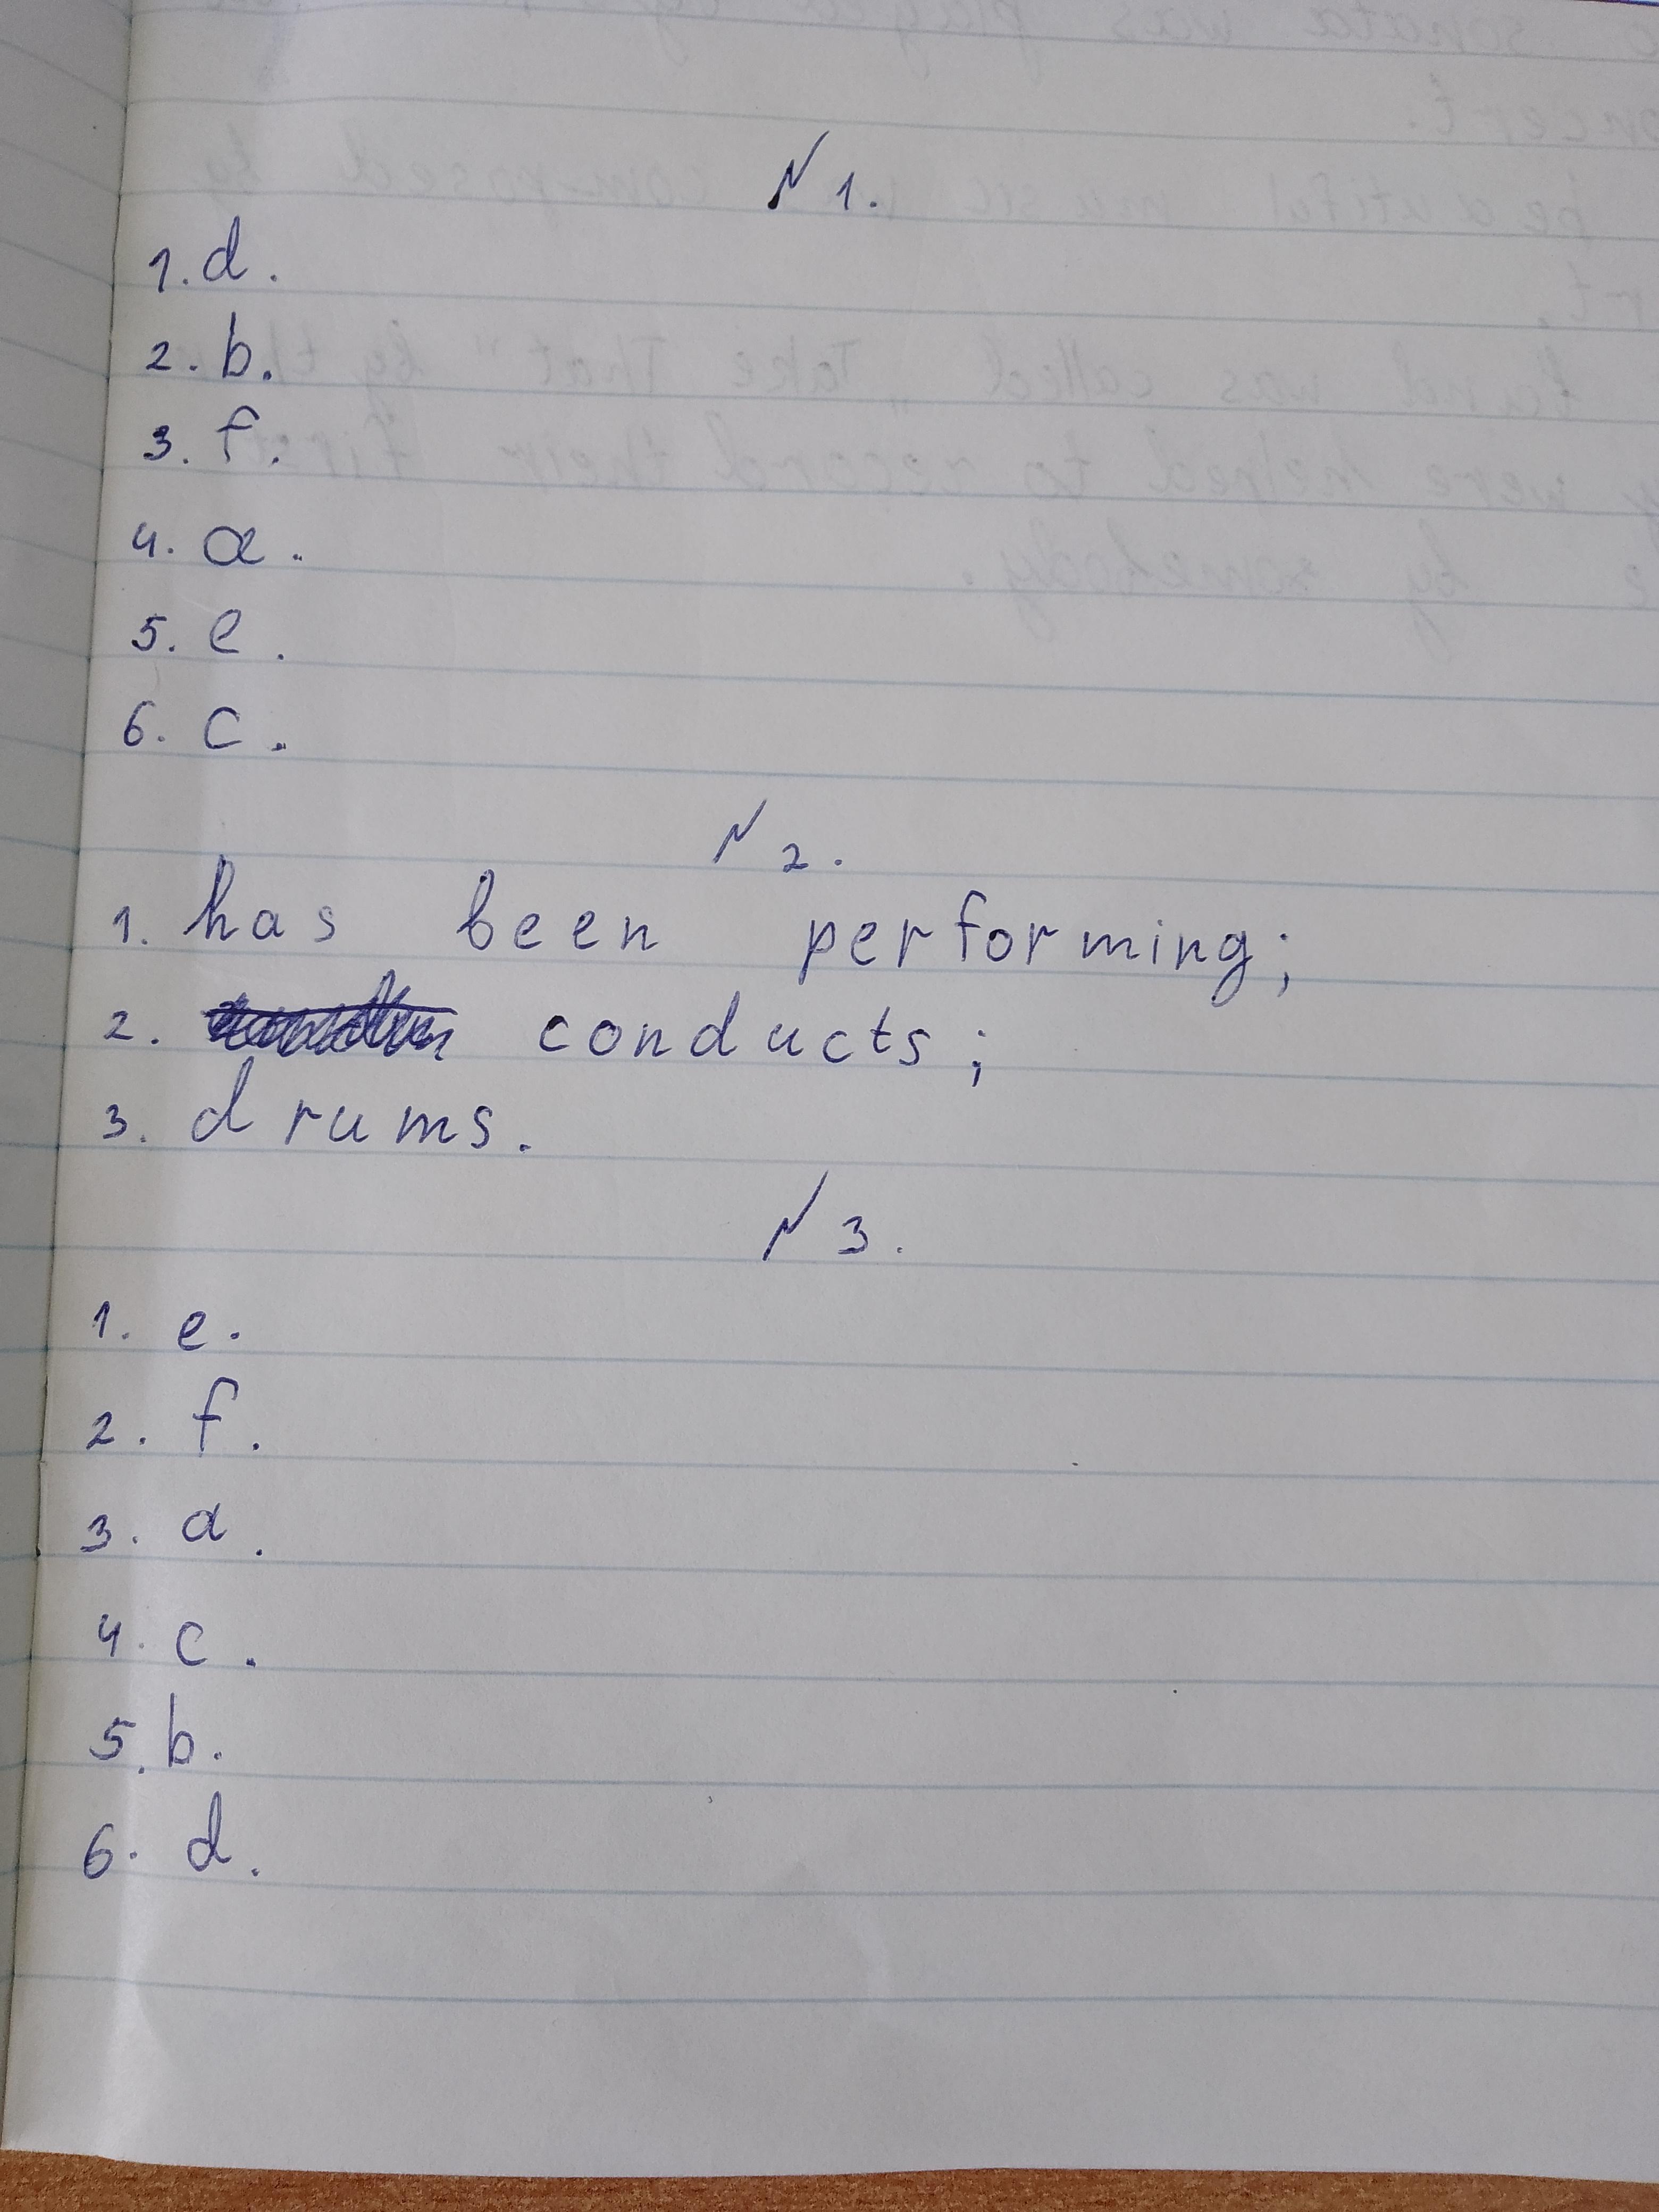 N 1.
1. d.
2. b.
3. f.
4. a.
5. e.
6. c.
N 2.
1. has been performing;
2. conducts;
3. drums.
N 3.
1. e.
2. f.
3. a.
4. c.
5. b.
6. d.